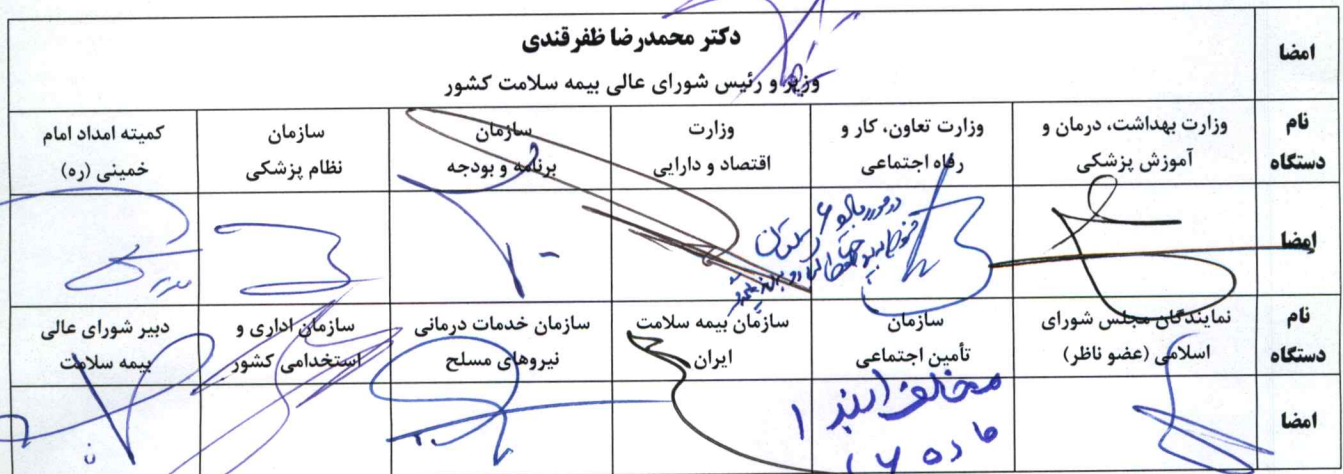 امضا
دکتر محمدرضا ظفرقندی
وزیر و رئیس شورای عالی بیمه سلامت کشور
نام دستگاه
وزارت بهداشت، درمان و
آموزش پزشکی
وزارت تعاون، کار و
رفاه اجتماعی
وزارت
اقتصاد و دارایی
سازمان
برنامه و بودجه
سازمان
نظام پزشکی
کمیته امداد امام
خمینی (ره)
امضا
در مورد
نام دستگاه
نمایندگان مجلس شورای
اسلامی (عضو ناظر)
سازمان
تأمین اجتماعی
سازمان بیمه سلامت
ایران
سازمان خدمات درمانی
نیروهای مسلح
سازمان اداری و
استخدامی کشور
دبیر شورای عالی
بیمه سلامت
امضا
مخالف بند ۱
ماده ۶